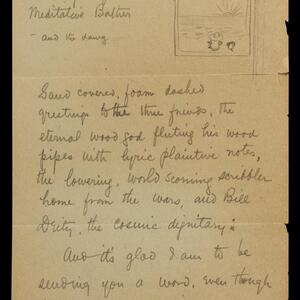 Meditative Bather
- and the dawg.
Sand covered, foam dashed
greetings to the three friends, the
eternal wood god fluting his wood
pipes with lyric plaintive notes,
the lowering, world scorning scribbler
home from the wars, and Bill
Deity, the cosmic dignitary:
And it's glad I am to be
sending you a word, even though